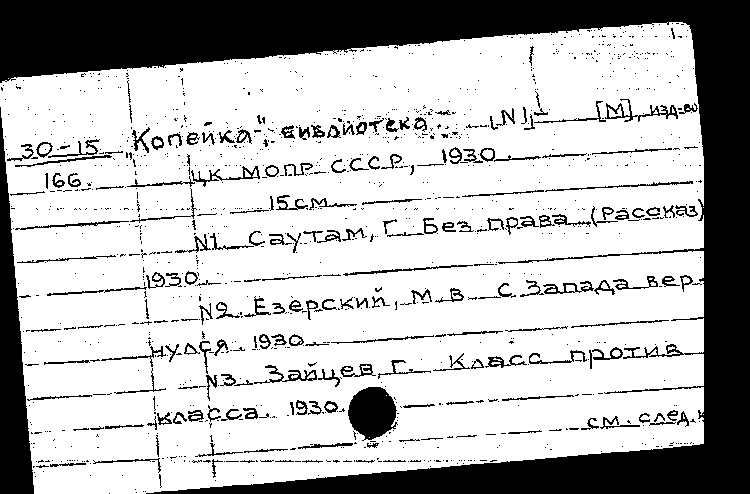 1.
30-15 „Копейка“, библиотека [N1]- [М], изд-во
166. ЦК МОПР СССР, 1930.
15 см.
N1. Саутам, Г. Без права (Рассказ)
1930.
N2. Езерский, М.В. С Запада вер-
нулся. 1930.
N3. Зайцев, Г. Класс против
класса. 1930.
см. след. к